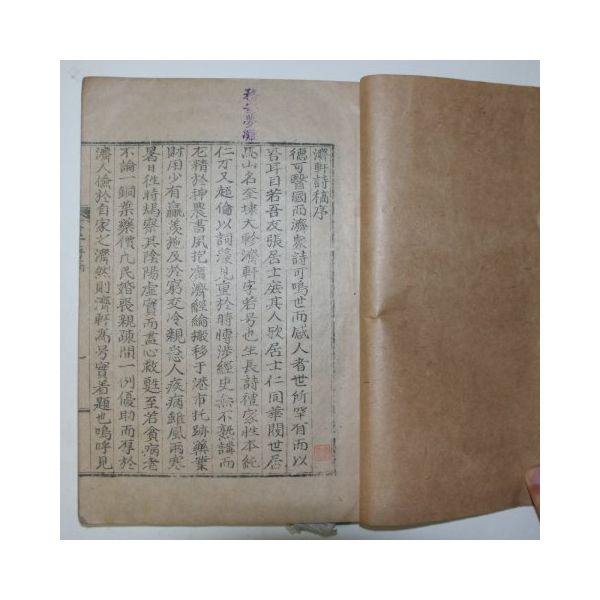 濟軒詩稿序
德可醫國而濟衆詩可鳴世而感人者世所罕有而以
吾耳目若吾友張居士庶其人歟居士仁同華閥世居
馬山名奎 大 濟軒字若号也生長詩禮家性本純
仁才又超倫以詞藻見重於時博涉經史無不熟講而
尤精於神農書夙抱廣濟經綸搬移于港市托跡藥業
財用少有贏羨施及於窮交冷親急人疾病雖風雨寒
暑日往時 察其陰陽虛實而盡心救甦至若貧病者
不論一銅葉藥價凡民婚喪親疎間一例優助而厚於
濟人儉於自家之濟然則濟軒寓号實著題也嗚呼見